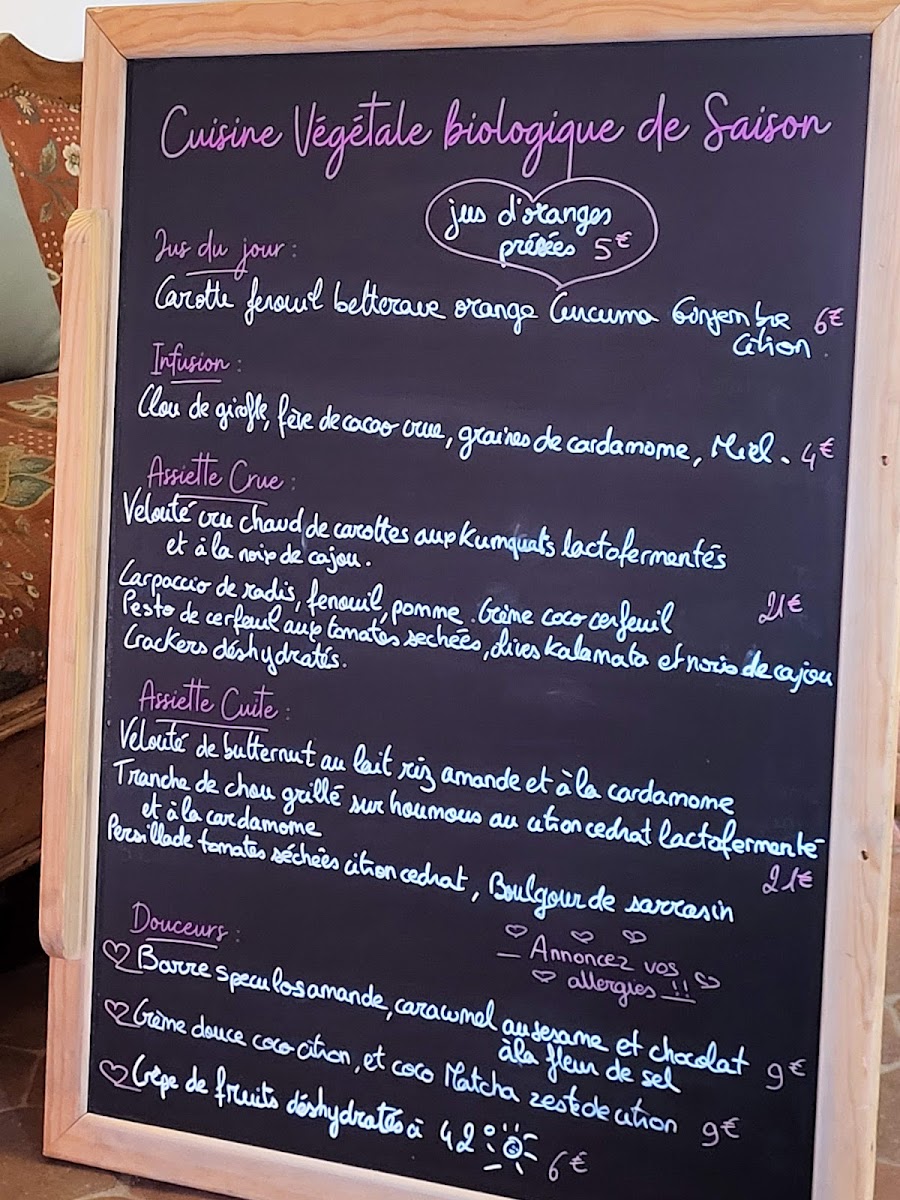 Cuisine Végétale biologique de Saison
jus d'oranges
préssées 5€
Jus du jour :
Carotte fenouil betterave orange Curcuma Gingembre 6€
citron.
Infusion :
Clou de girofle, fève de cacao crue, graines de cardamome, Miel. 4€
Assiette Crue :
Velouté cru chaud de carottes aux Kumquats lactofermentés
et à la noix de cajou.
Carpaccio de radis, fenouil, pomme. Crème coco cerfeuil 21€
Pesto de cerfeuil aux tomates sechées, olives Kalamata et noix de cajou
Crackers déshydratés.
Assiette Cuite :
Velouté de butternut au lait riz amande et à la cardamome
Tranche de chou grillé sur houmous au citron cedrat lactofermenté
et à la cardamome
21€
Persillade tomates séchées citron cedrat, Boulgour de sarrasin
Douceurs :
— Annoncez vos
allergies !!
Barre speculos amande, caramel au sesame et chocolat
à la fleur de sel 9€
Crème douce coco citron, et coco Matcha zeste de citron 9€
Crêpe de fruits déshydratés à 42 6€